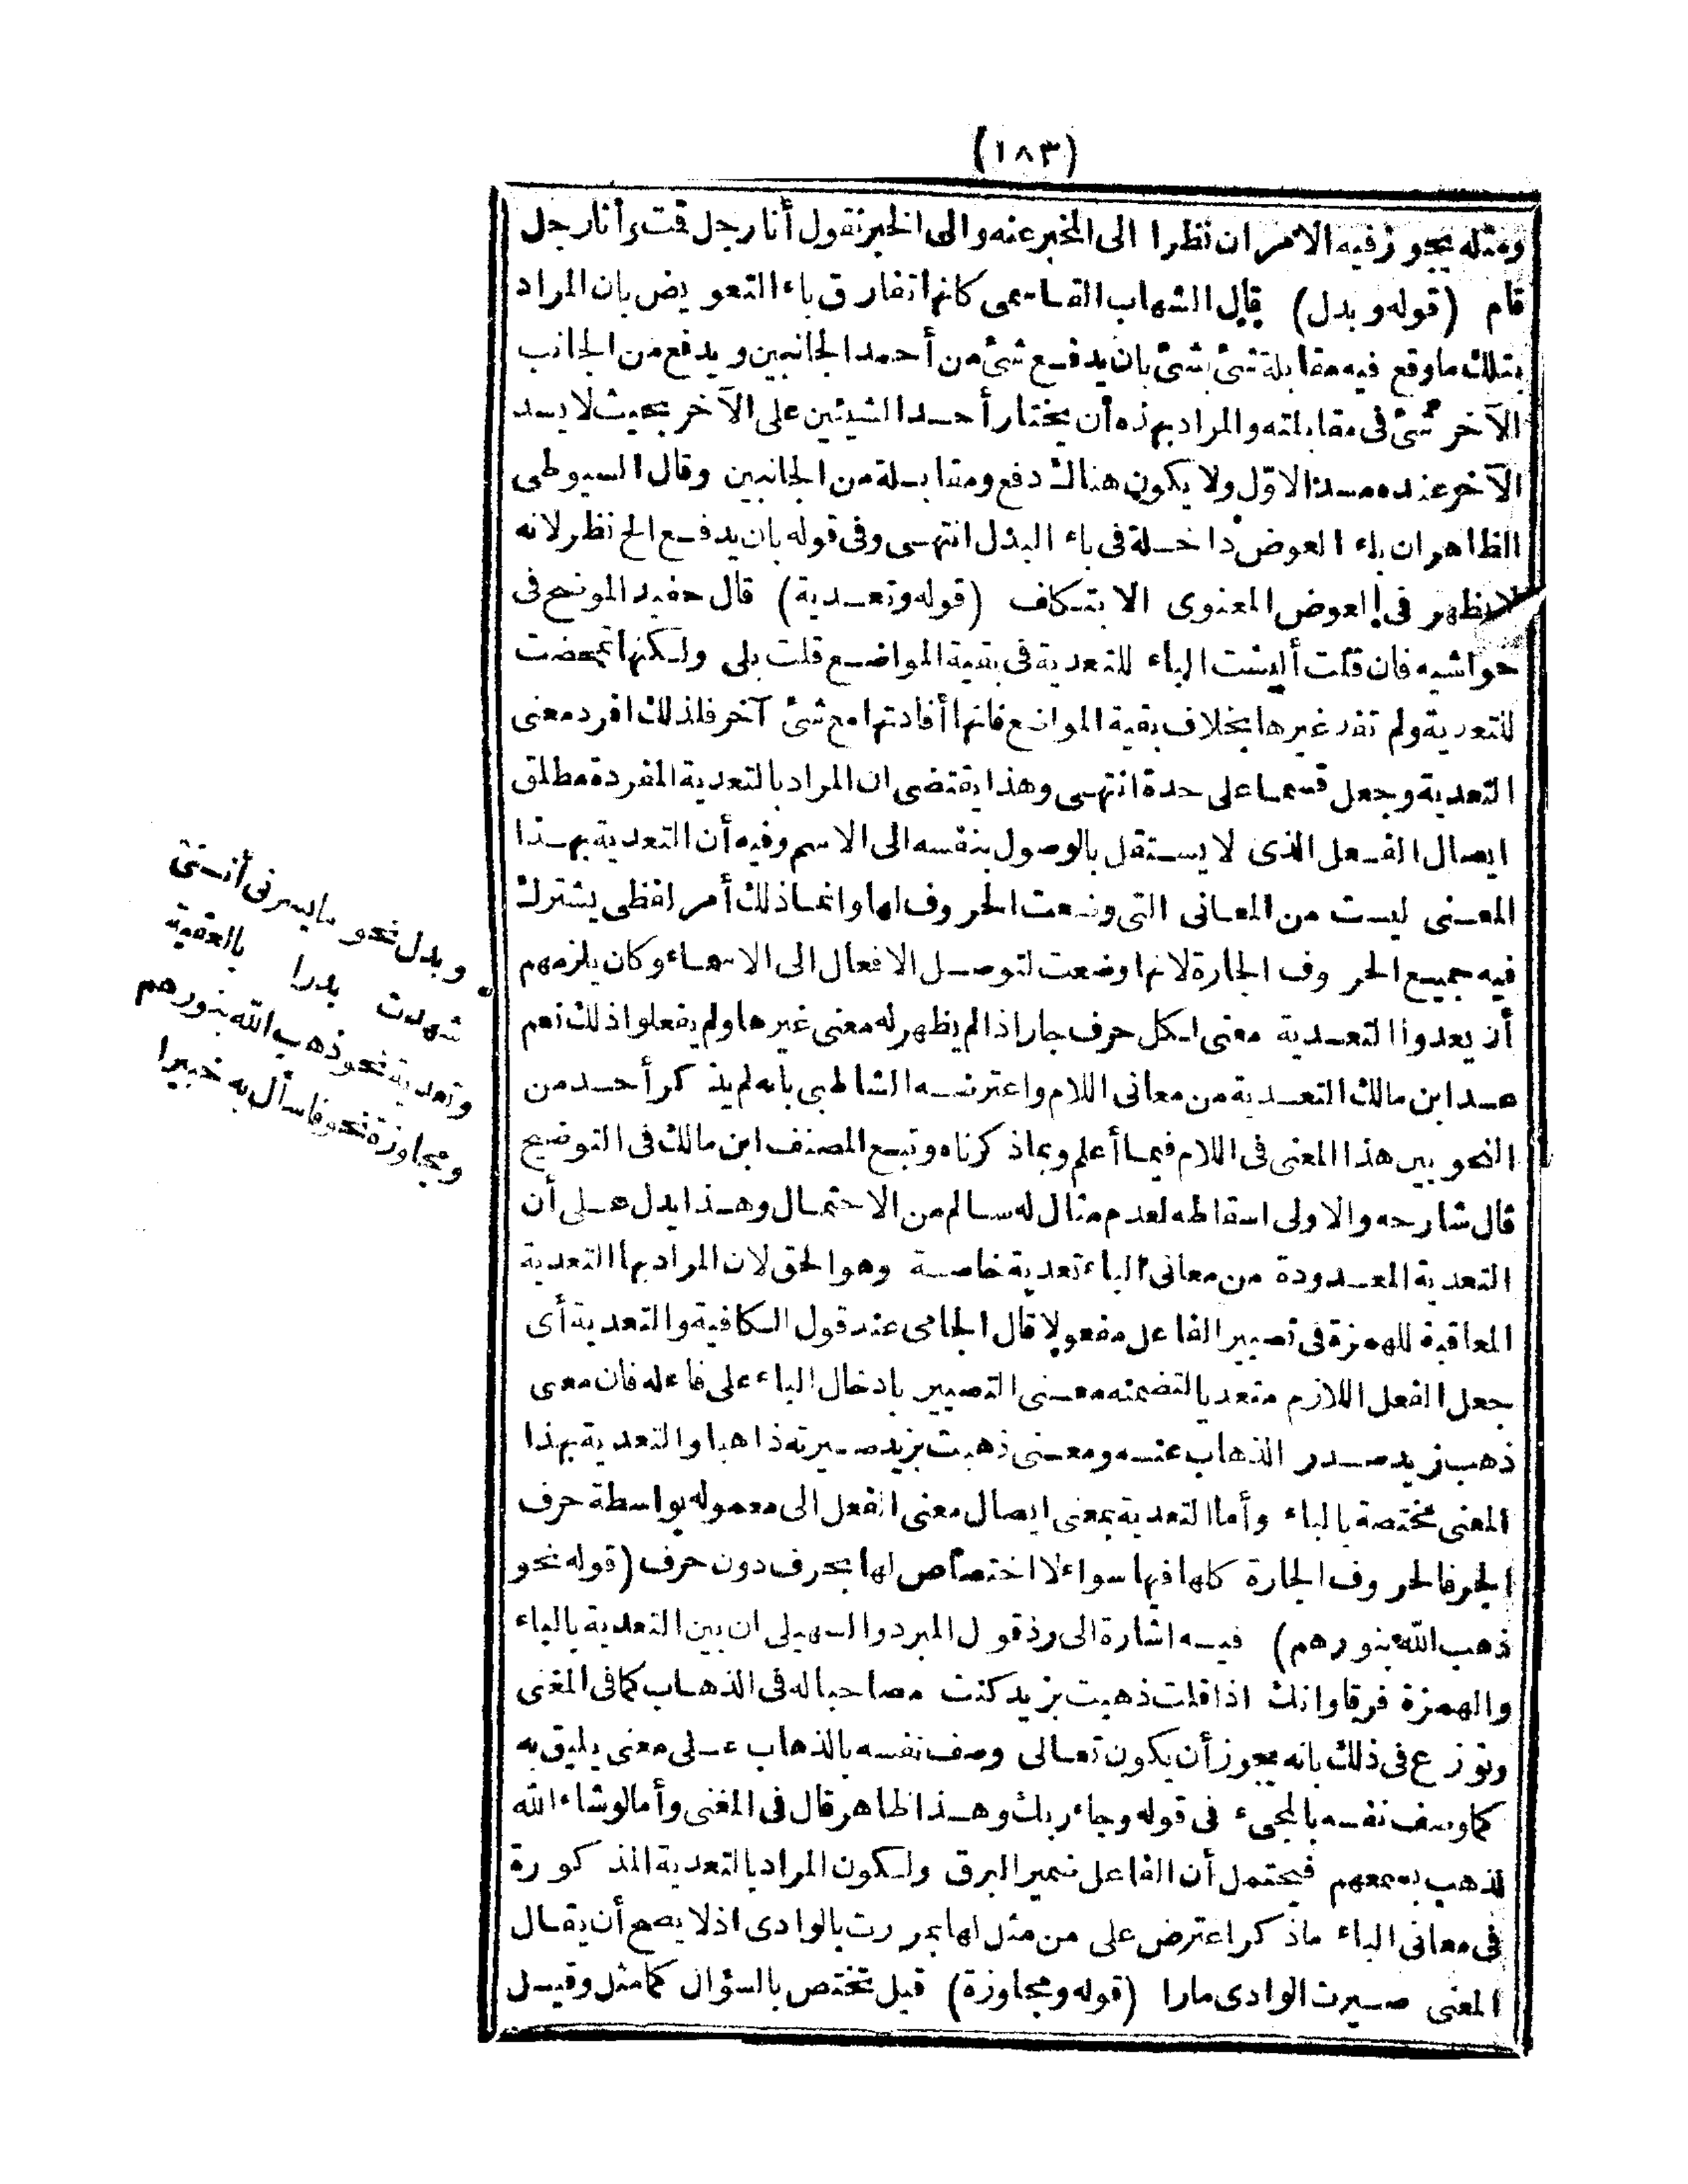 (١٨٣)
ومثله يجوز فيه الامران نظرا الى المخبر عنه والى الخبر نقول أنا رجل قمت وأنا رجل
قام (قوله وبدل) قال الشهاب القاسمى كانها تفارق باء التعويض بان المراد
بتلك ما وقع فيه مقابلة شئ بشئ بان يدفع شئ من أحد الجانبين ويدفع من الجانب
الآخر شئ فى مقابلته والمراد بهذه أن يختار أحد الشيئين على الآخر بحيث لا يسد
الآخر عنده مسد الاول ولا يكون هناك دفع ومقابلة من الجانبين وقال السيوطى
الظاهر ان باء العوض داخلة فى باء البدل انتهى وفى قوله بان يدفع الخ نظر لانه
لا يظهر فى العوض المعنوى الا بتكلف (قوله وتعدية) قال حفيد الموضح فى
حواشيه فان قلت أليست الباء للتعدية فى بقية المواضع قلت بلى ولكنها تمحضت
للتعدية ولم تفد غيرها بخلاف بقية المواضع فانها أفادتها مع شئ آخر فلذلك افرد معنى
التعدية وجعل قسما على حدة انتهى وهذا يقتضى ان المراد بالتعدية المفردة مطلق
ايصال الفعل الذى لا يستقل بالوصول بنفسه الى الاسم وفيه أن التعدية بهذا
المعنى ليست من المعانى التى وضعت الحروف لها وانما ذلك أمر لفظى يشترك
فيه جميع الحروف الجارة لانها وضعت لتوصل الافعال الى الاسماء وكان يلزمهم
أن يعدوا التعدية معنى لكل حرف جار اذا لم يظهر له معنى غيرها ولم يفعلوا ذلك نعم
عد ابن مالك التعدية من معانى اللام واعترضه الشاطبى بانه لم يذكر أحد من
النحويين هذا المعنى فى اللام فيما أعلم وبما ذكرناه وتبع المصنف ابن مالك فى التوضيح
قال شارحه والاولى اسقاطه لعدم مثال له سالم من الاحتمال وهذا يدل على أن
التعدية المعدودة من معانى الباء تعدية خاصة وهو الحق لان المراد بها التعدية
المعاقبة للهمزة فى تصيير الفاعل مفعولا قال الجامى عند قول الكافية والتعدية أى
جعل الفعل اللازم متعديا لتضمنه معنى التصيير بادخال الباء على فاعله فان معنى
ذهب زيد صدر الذهاب عنه ومعنى ذهبت بزيد صيرته ذاهبا والتعدية بهذا
المعنى مختصة بالباء وأما التعدية بمعنى ايصال معنى الفعل الى معموله بواسطة حرف
الجر فالحروف الجارة كلها فيها سواء لا اختصاص لها بحرف دون حرف (قوله نحو
ذهب الله بنورهم) فيه اشارة الى رد قول المبرد والسهيلى ان بين التعدية بالباء
والهمزة فرقا وانك اذا قلت ذهبت بزيد كنت مصاحبا له فى الذهاب كما فى المغنى
ونوزع فى ذلك بانه يجوز أن يكون تعالى وصف نفسه بالذهاب على معنى يليق به
كما وصف نفسه بالمجىء فى قوله وجاء ربك وهذا ظاهر قال فى المغنى وأما لو شاء الله
لذهب بسمعهم فيحتمل أن الفاعل ضمير البرق ولكون المراد بالتعدية المذكورة
فى معانى الباء ما ذكر اعترض على من مثل لها بمررت بالوادى اذ لا يصح أن يقال
المعنى صيرت الوادى مارا (قوله ومجاوزة) قيل تختص بالسؤال كما مثل وقيل
وبدل نحو ما يسرنى أننى
شهدت بدرا بالعقبة
وتعدية نحو ذهب الله بنورهم
ومجاوزة نحو فاسأل به خبيرا